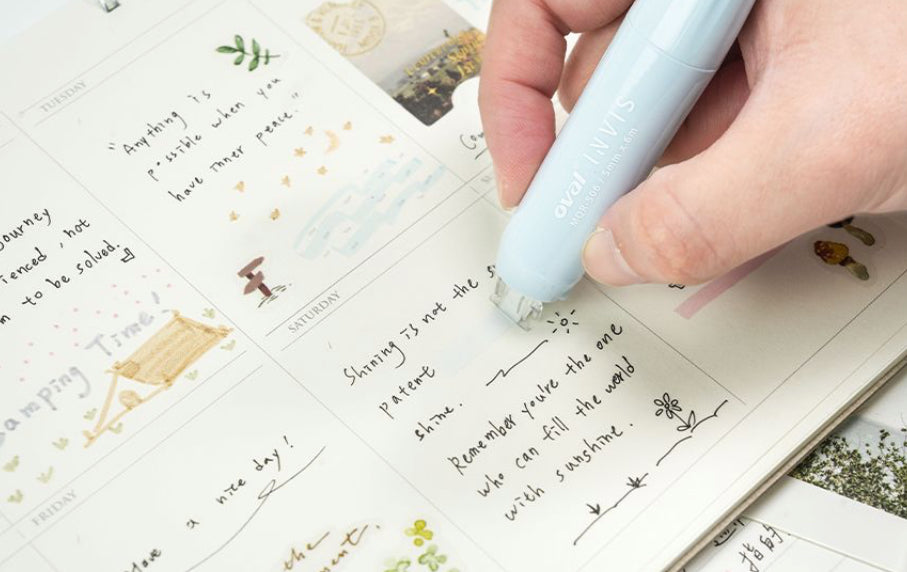 TUESDAY
"Anything is
possible when you
have inner peace."
ourney
ienced, not
m to be solved.
amping Time!
SATURDAY
Shining is not the s
patent
shine.
Remember you're the one
who can fill the world
with sunshine.
FRIDAY
a nice day!
the
oval INVIS
MDR-506 / 5mm x 6m
指的